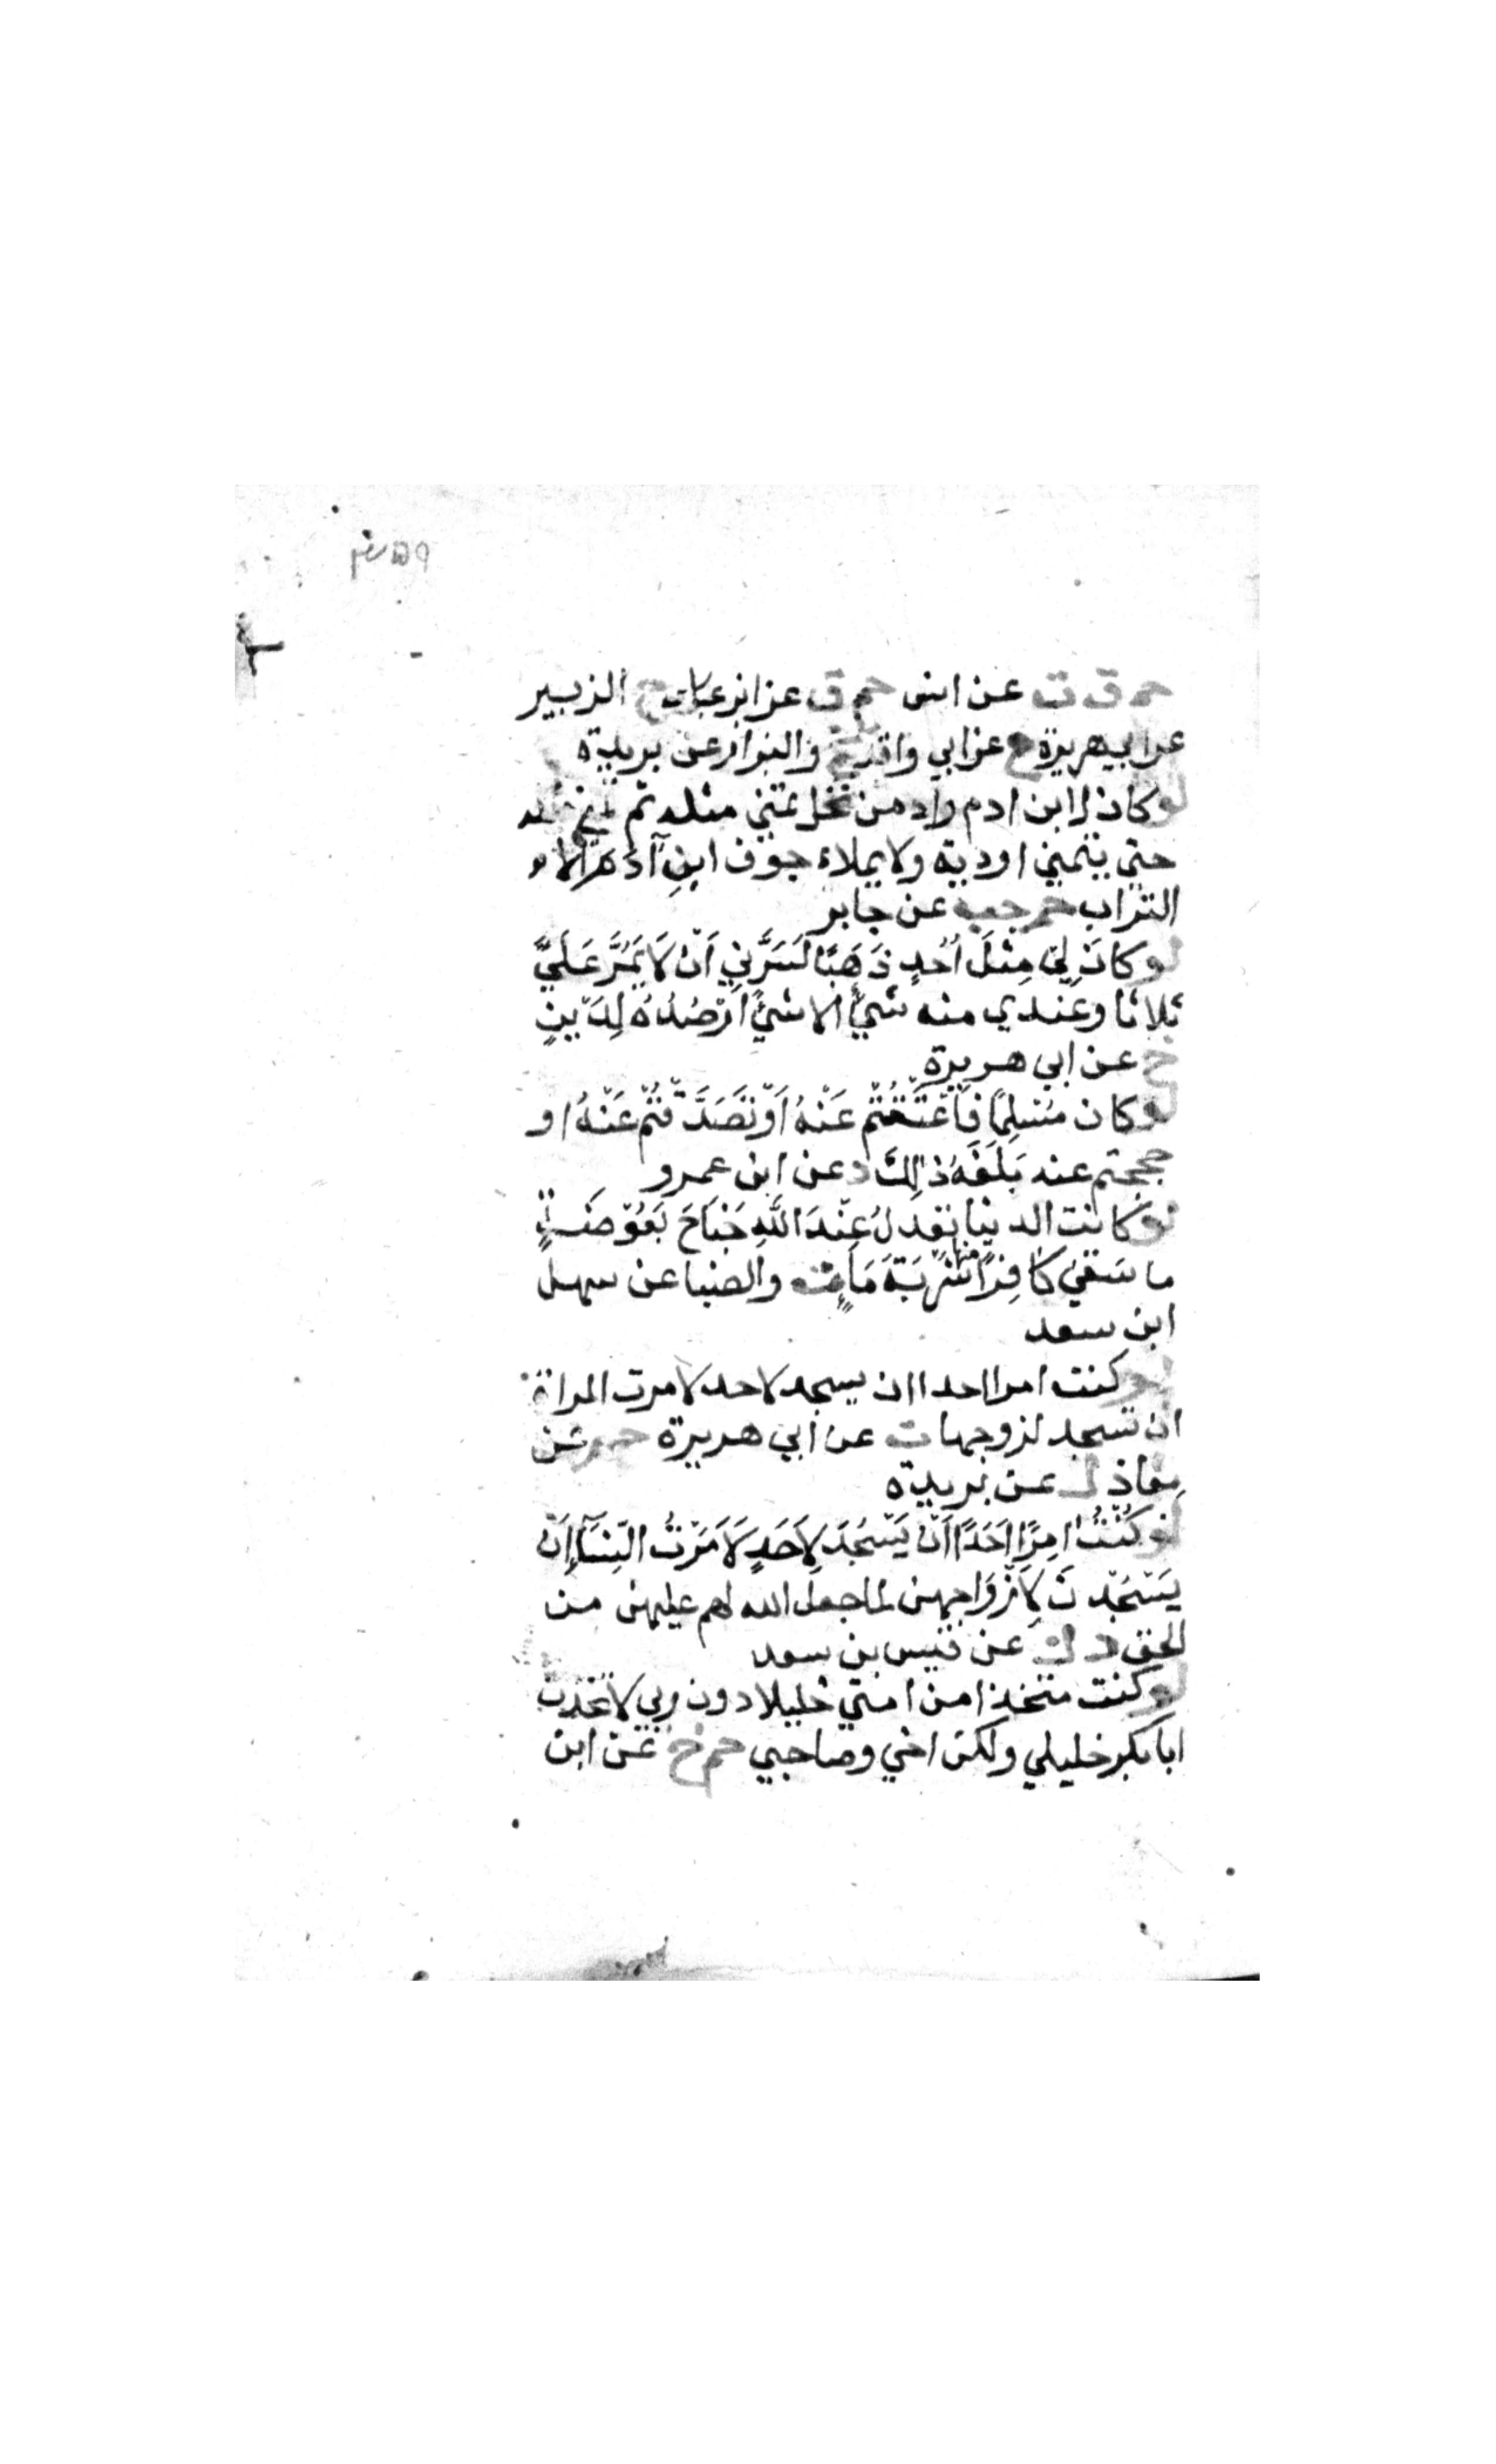 حم ق ت عن انس حم ق عن ابن عباس خ الزبير
عن ابي هريرة عن ابي واقد تخ والبزار عن بريدة
لو كان لابن ادم واد من نخل تمني مثله ثم تمني مثله
حتي يتمني اودية ولا يملاء جوف ابنِ آدم الا
التراب حم حب عن جابر
لو كانَ لِي مِثلَ اُحُدٍ ذَهَبًا لَسَرَّنِي اَنْ لَا يَمُرَّ عَلَيَّ
ثلاثا وعندي منه شيٌ الا شيٌ اَرْصُدُهُ لِدَيْنٍ
خ عن ابي هريرة
لو كان مُسْلِمًا فَاَعْتَقْتُمْ عَنْهُ اَوْ تَصَدَّقْتُمْ عَنْهُ او
حججتم عنه بَلَغَهُ ذٰلِكَ د عن ابن عمرو
لو كانت الدنيا تعدلُ عِنْدَ اللهِ جَنَاحَ بَعُوْضَةٍ
ما سَقىٰ كافِرًا منها شَرْبَةَ مَاءٍ ت والضيا عن سهل
ابن سعد
لو كنت امرا احدا ان يسجد لاحد لامرت المراة
ان تسجد لزوجها ت عن ابي هريرة حم عن
معاذ ك عن بريدة
لو كُنْتُ امِرًا اَحَدًا اَنْ يَسْجُدَ لِاَحَدٍ لَاَمَرْتُ النِسَآءَ اَنْ
يَسْجُدْنَ لِاَزْوَاجِهن لما جعل الله لهم عليهن من
الحق د ك عن قيس بن سعد
لو كنت متخذا من امتي خليلا دون ربي لاتخذت
ابا بكر خليلي ولكن اخي وصاحبي حم خ عن ابن